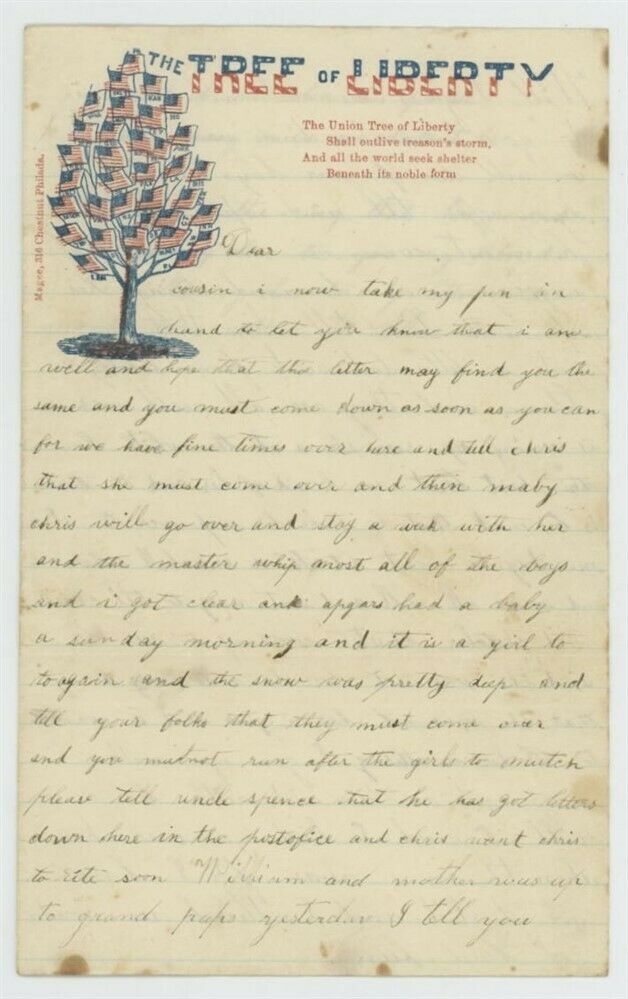 THE TREE OF LIBERTY
The Union Tree of Liberty
Shall outlive treason's storm,
And all the world seek shelter
Beneath its noble form
Magee, 316 Chestnut Philada.
Dear
cousin i now take my pen in
hand to let you know that i am
well and hope that this letter may find you the
same and you must come down as soon as you can
for we have fine times over here and tell chris
that she must come over and then maby
chris will go over and stay a week with her
and the master whip amost all of the boys
and i got clear and apgars had a baby
a sunday morning and it is a girl to
to again and the snow was pretty deep and
tell your folks that they must come over
and you mustnot run after the girls to mutch
please tell uncle spence that he has got letters
down here in the postofice and chris want chris
to rite soon William and mother was up
to grand paps yesterday I tell you